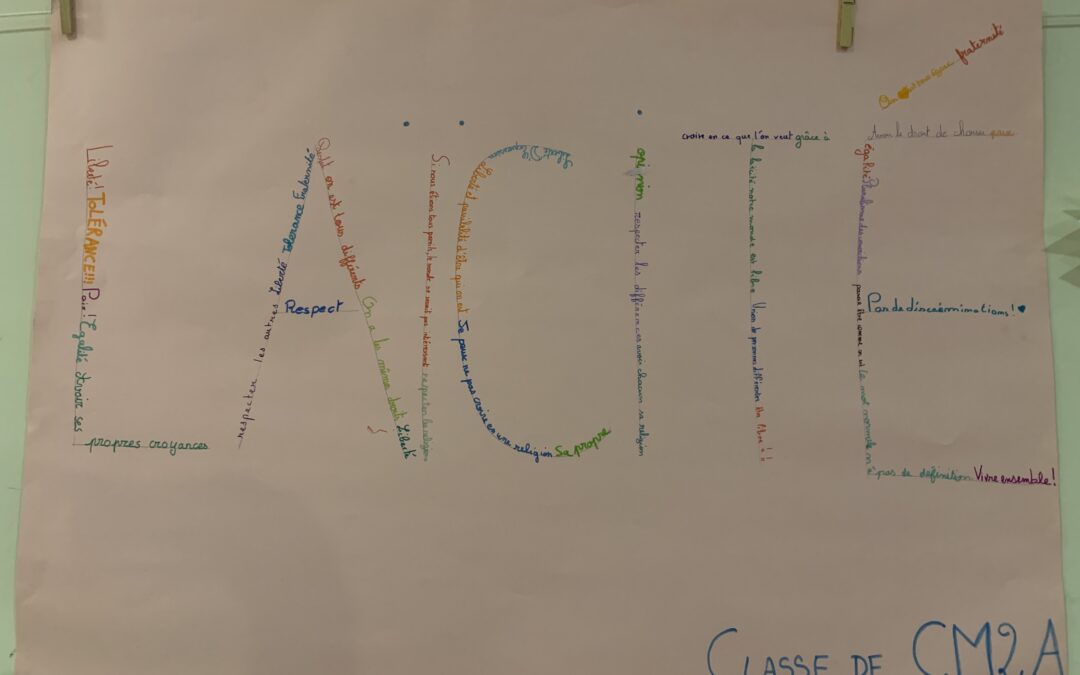 Liberté! TOLÉRANCE!!! Paix! Égalité Avoir ses
propres croyances
respecter les autres Liberté Tolerance Fraternité
Respect
on est tous différents On a les même droits Liberté
Si nous étions tous pareils, le monde ne serait pas intéressant respecter les religions
Liberté D'Expression
Liberté et possibilité d'être qui on est Se pauser ne pas croire en une religion Sa propre
opinion respecter les différences avoir chacun sa religion
croire en ce que l'on veut grâce à
la laïcité notre monde est libre Vivre de personnes différentes être libre!!
fraternité
Avoir le droit de choisir
égalité pouvoir être comme on est Le mot normale n'
a pas de définition Vivre ensemble!
Pas de discériminations!
CLASSE DE CM2A